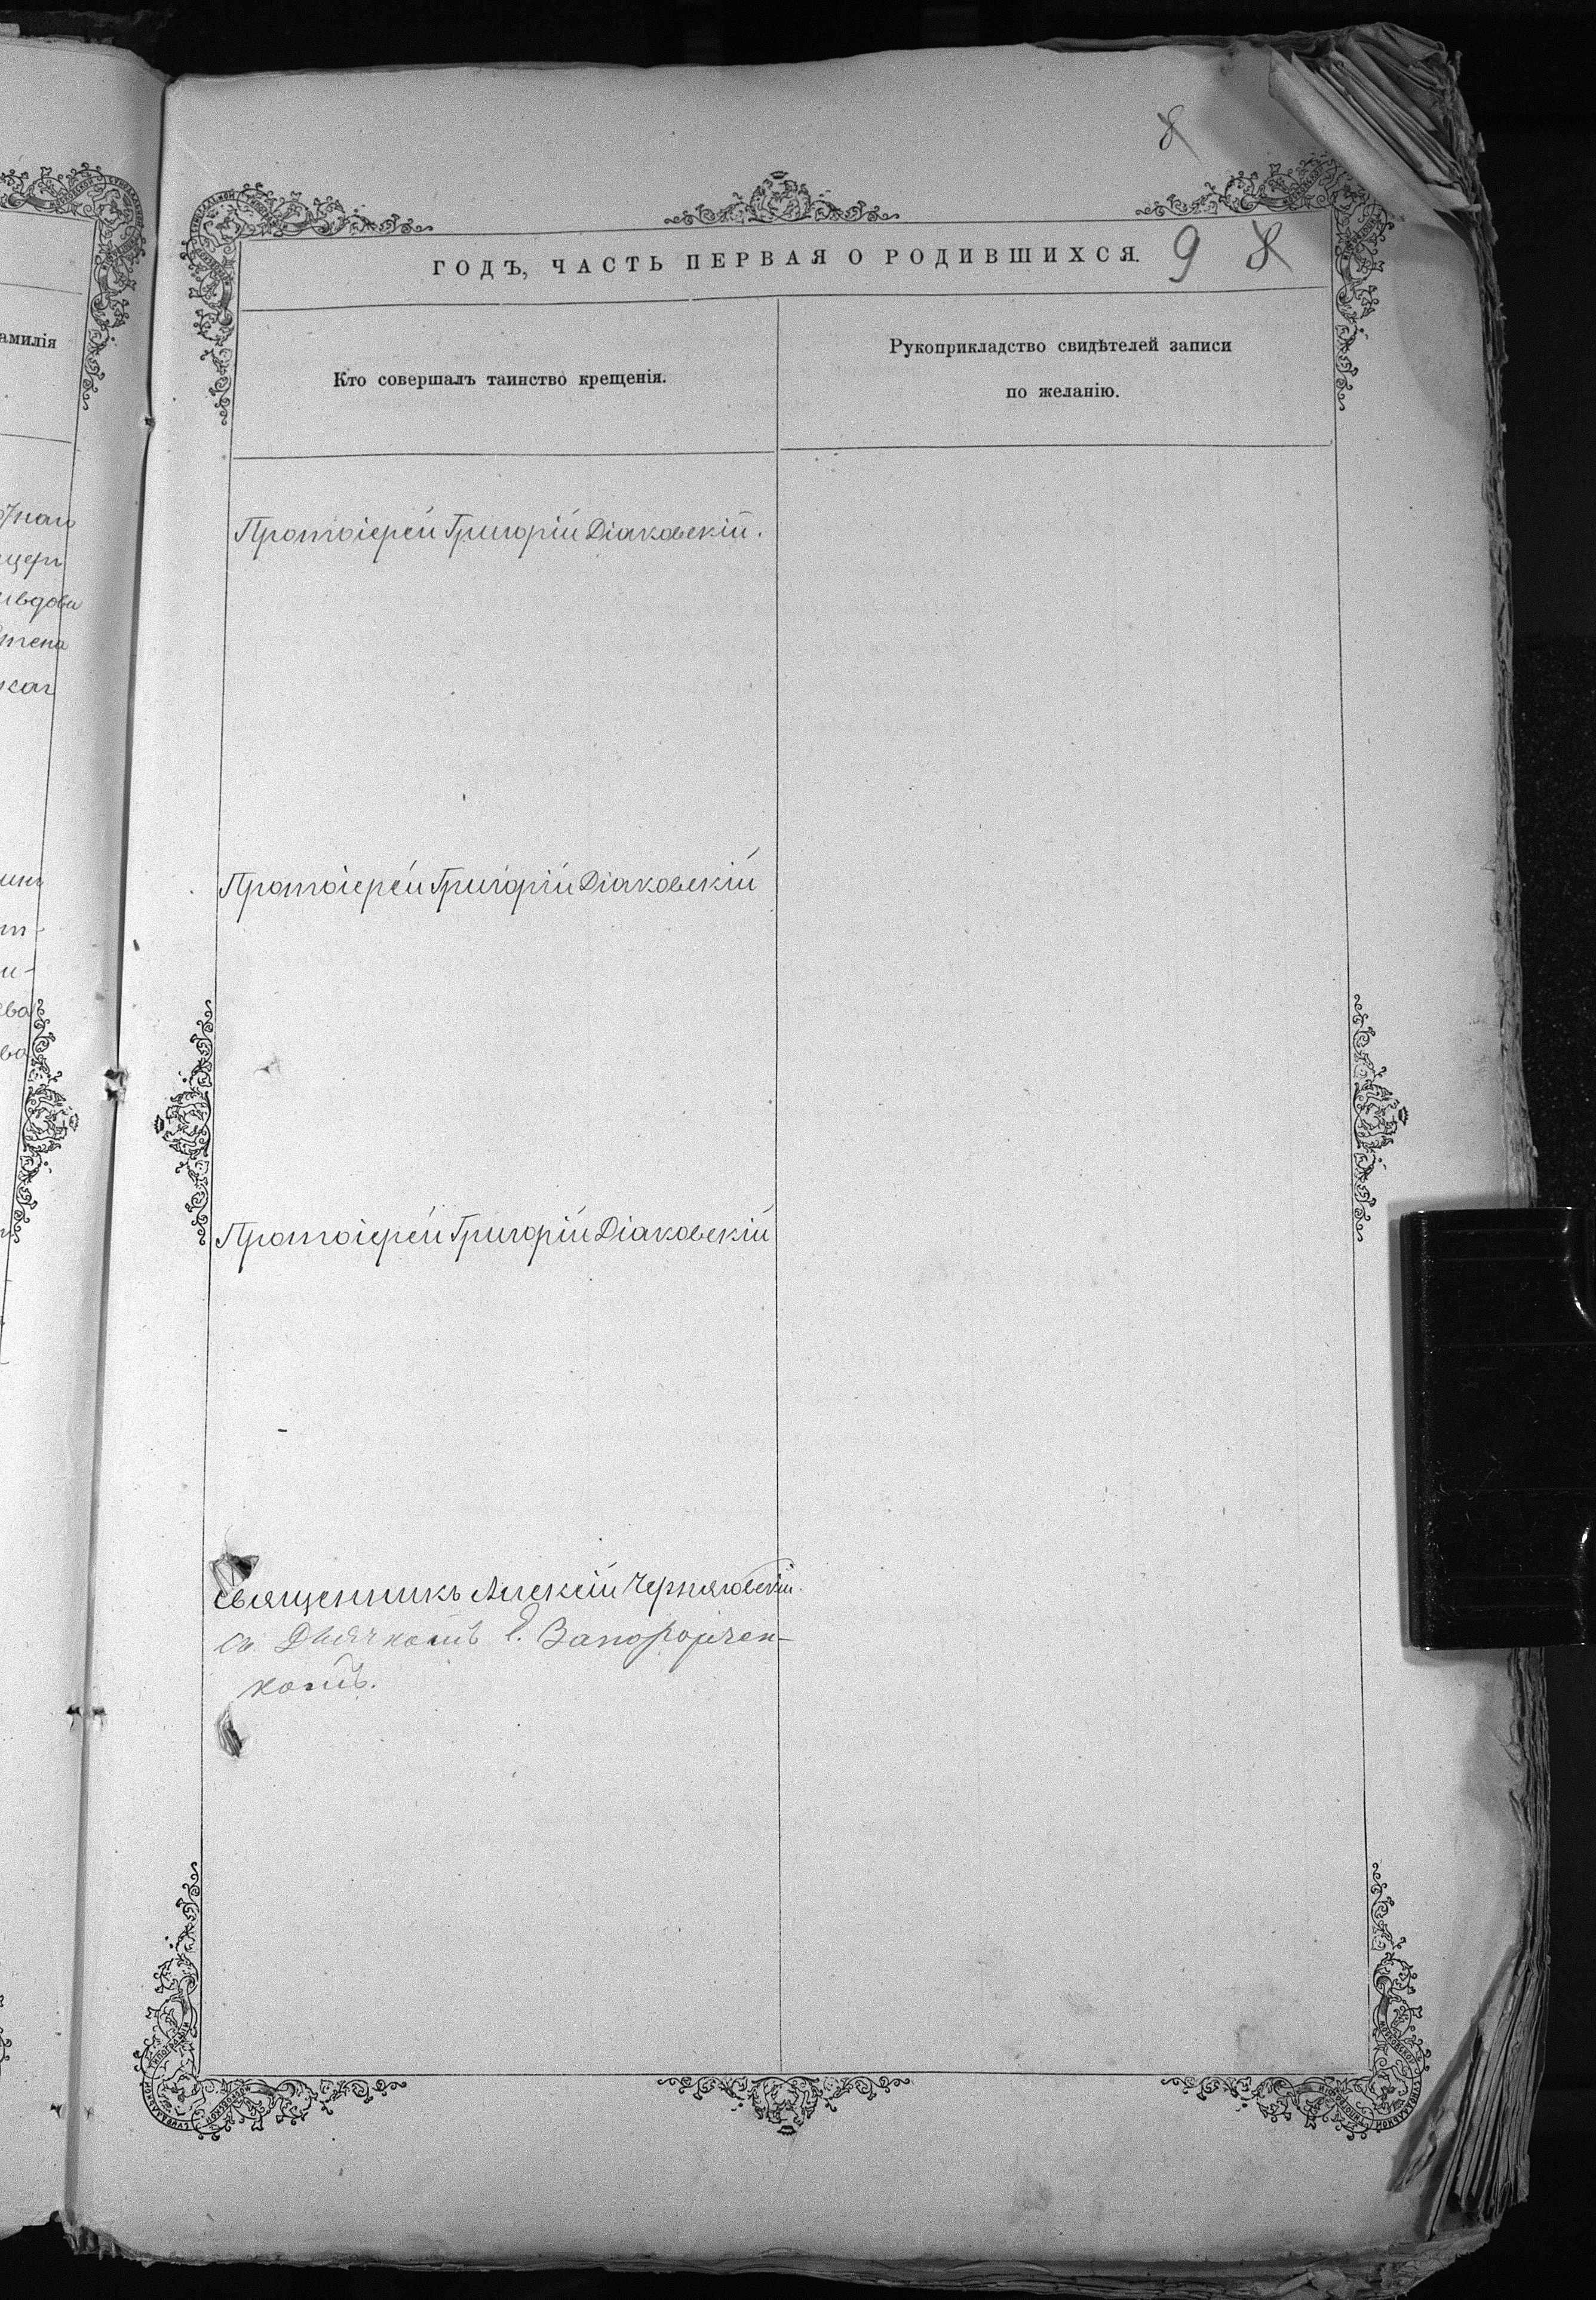 8
ГОДЪ, ЧАСТЬ ПЕРВАЯ О РОДИВШИХСЯ. 9 8
амилія
Кто совершалъ таинство крещенія.
Рукоприкладство свидѣтелей записи
по желанію.
Протоіерей Григорій Діаковскій.
Протоіерей Григорій Діаковскій
Протоіерей Григорій Діаковскій
Священникъ Алексій Черняговскій.
съ Дьячкомъ Е. Запорожчен-
комъ.